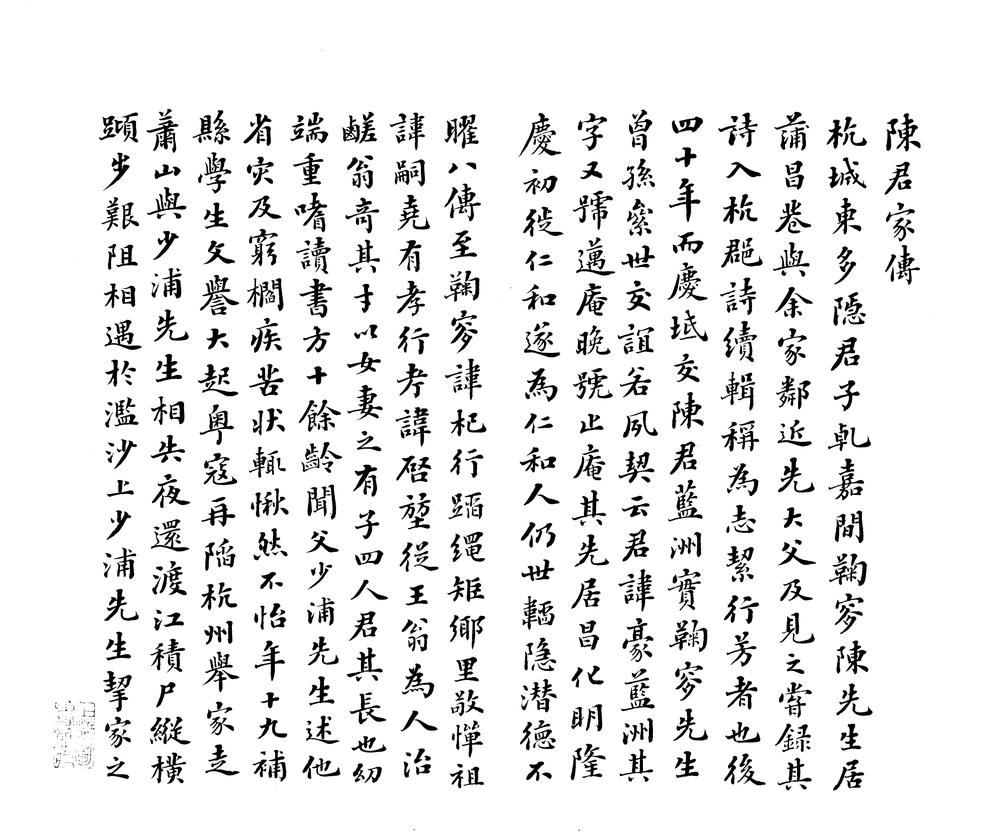 陳君家傳
杭城東多隱君子乹嘉間鞠寥陳先生居
蒲昌巷與余家鄰近先大父及見之嘗録其
詩入杭郡詩續輯稱為志絜行芳者也後
四十年而慶坻交陳君藍洲實鞠寥先生
曾孫絫世交誼若夙契云君諱豪藍洲其
字又號邁庵晚號止庵其先居昌化明隆
慶初徙仁和遂為仁和人仍世韜隱潜德不
曜八傳至鞠寥諱杞行蹈繩矩鄉里敬憚祖
諱嗣堯有孝行考諱啓堃從王翁為人治
鹺翁奇其才以女妻之有子四人君其長也幼
端重嗜讀書方十餘齡聞父少浦先生述他
省灾及窮櫩疾苦狀輒愀然不怡年十九補
縣學生文譽大起粤寇再陷杭州舉家走
蕭山與少浦先生相失夜還渡江積尸縱橫
蹞步艱阻相遇於濫沙上少浦先生挈家之